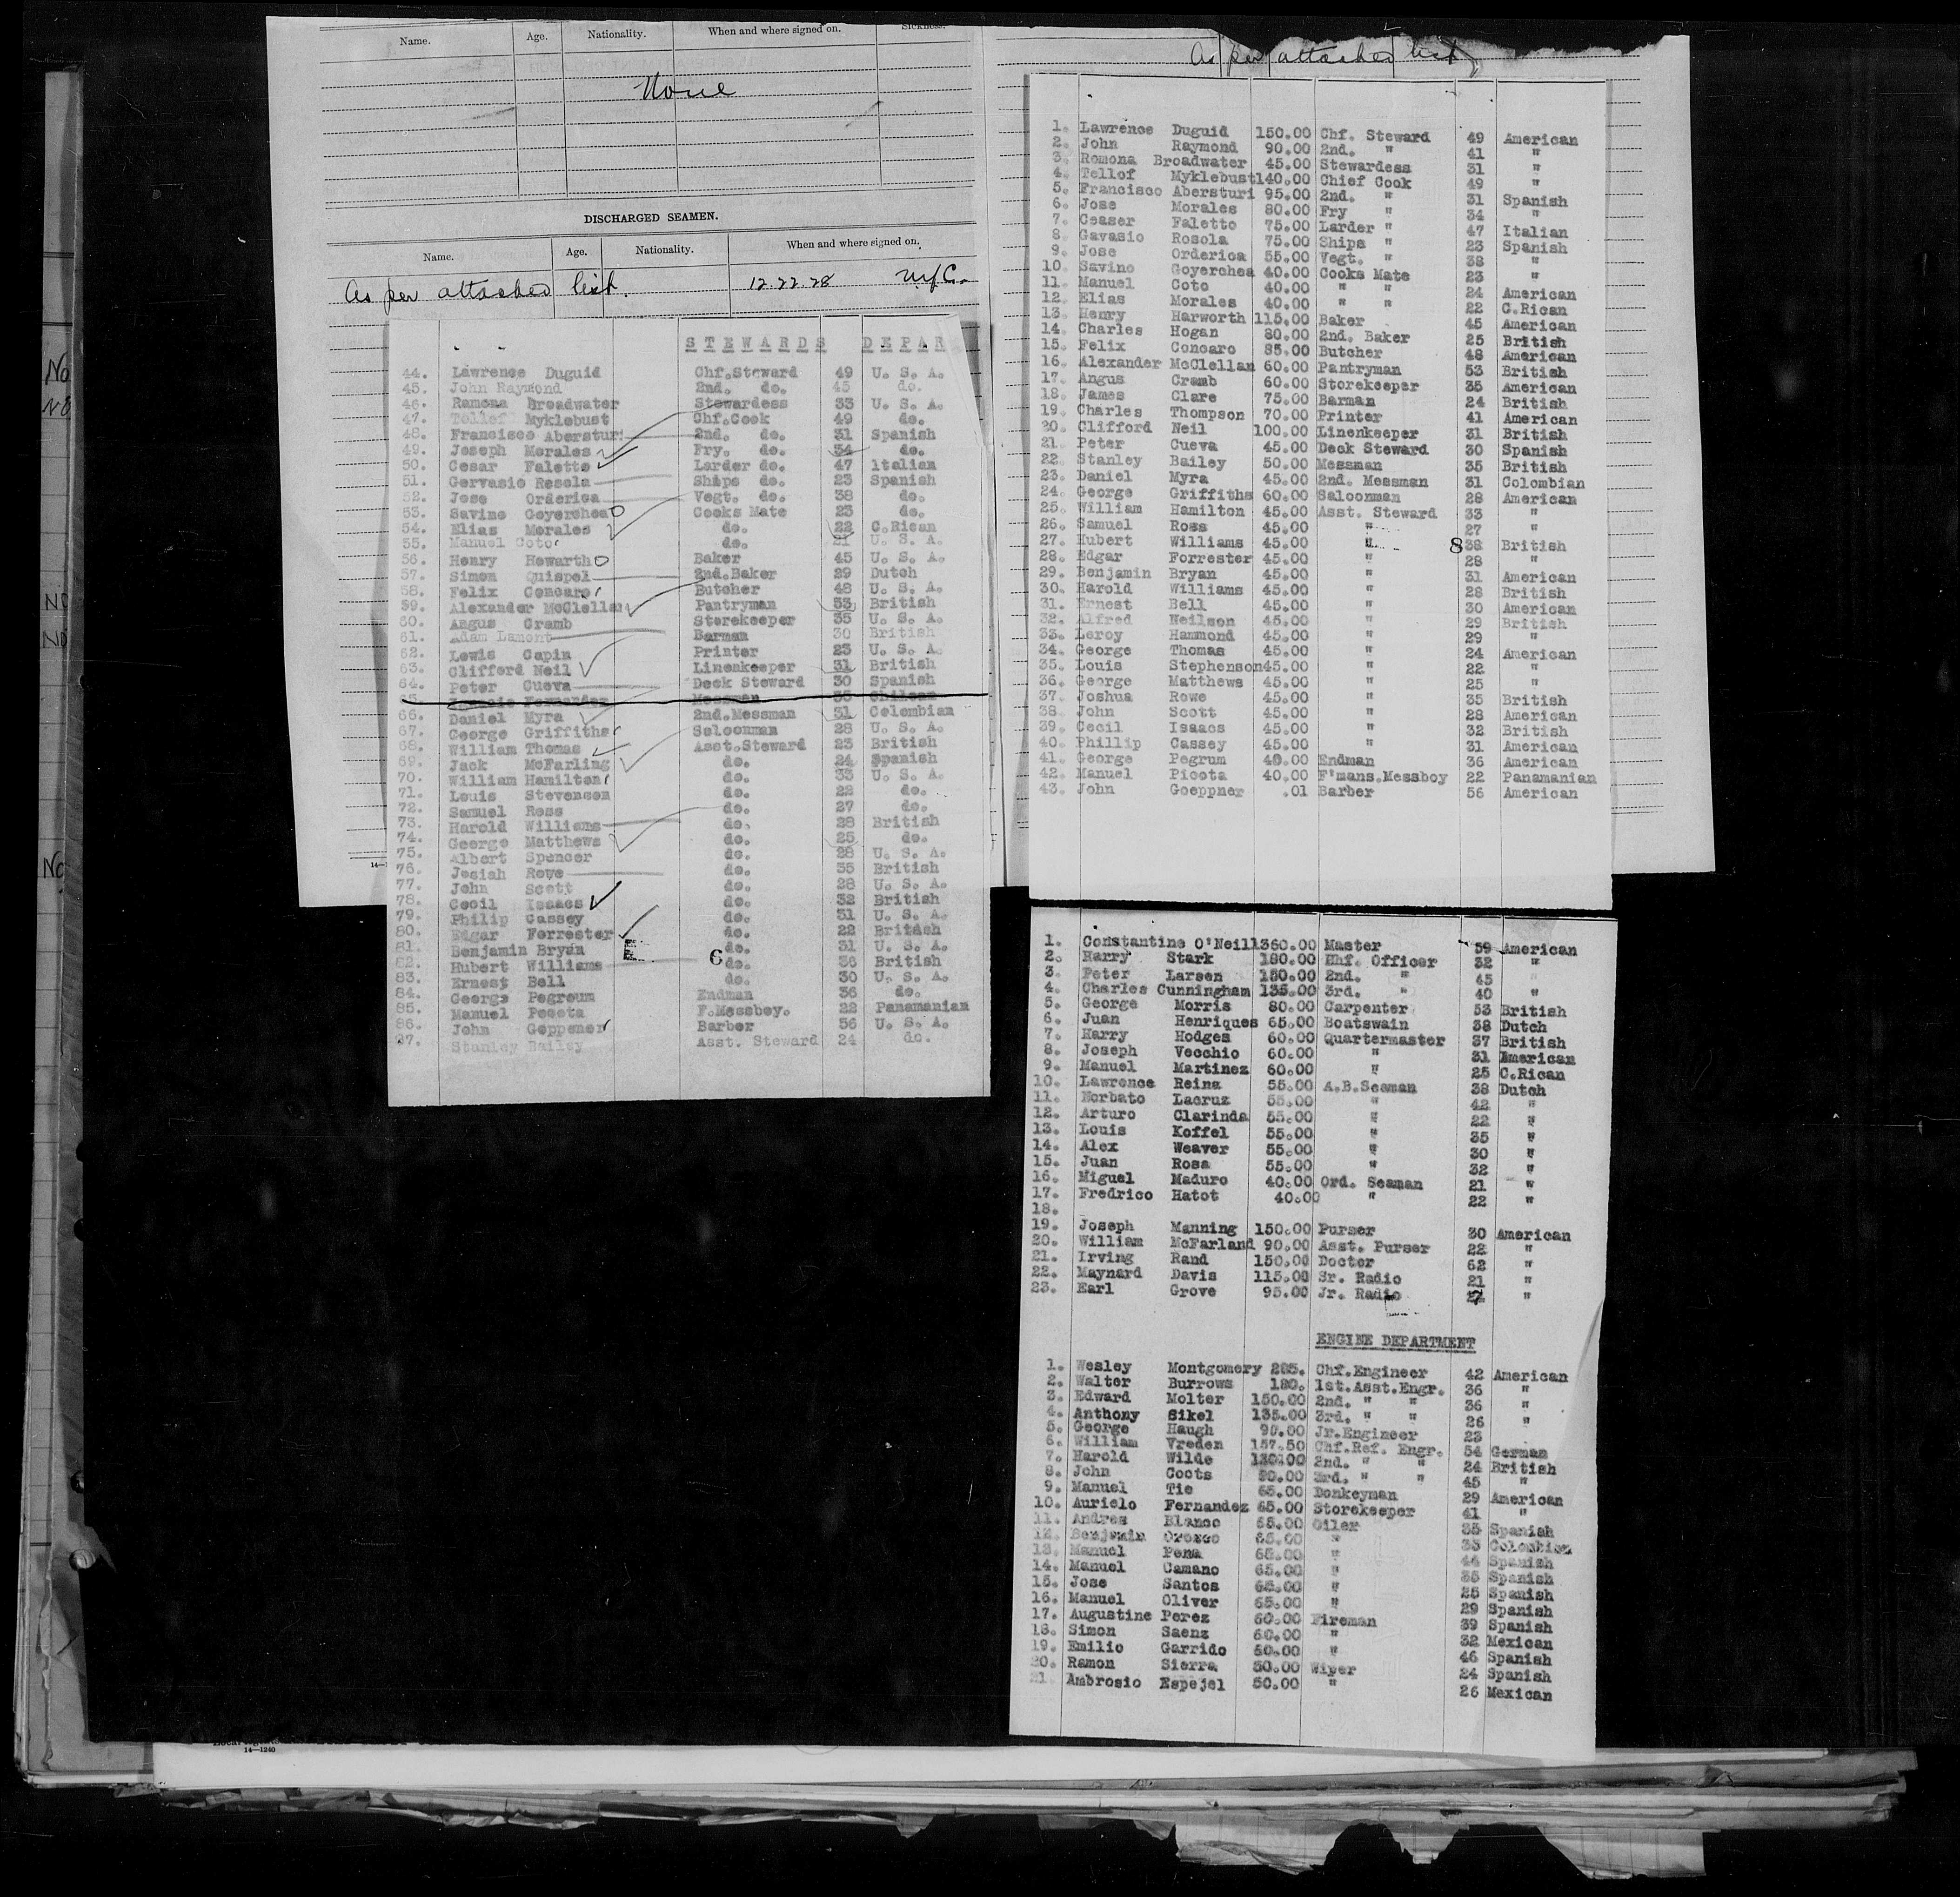 Name. Age. Nationality. When and where signed on. Sickness.
None
DISCHARGED SEAMEN.
Name. Age. Nationality. When and where signed on.
As per attached list. 12.22.28 NYC.
STEWARDS DEPAR
44. Lawrence Duguid Chf.Steward 49 U. S. A.
45. John Raymond 2nd. do. 45 do.
46. Ramona Broadwater Stewardess 33 U. S. A.
47. Tellef Myklebust Chf.Cook 49 do.
48. Francisco Abersturi 2nd. do. 31 Spanish
49. Joseph Morales Fry. do. 34 do.
50. Cesar Faletto Larder do. 47 Italian
51. Gervasio Resola Ships do. 23 Spanish
52. Jose Orderica Vegt. do. 38 do.
53. Savino Goyerchea Cooks Mate 23 do.
54. Elias Morales do. 22 C.Rican
55. Manuel Coto do. 21 U. S. A.
56. Henry Howarth Baker 45 U. S. A.
57. Simon Quispel 2nd.Baker 29 Dutch
58. Felix Concaro Butcher 48 U. S. A.
59. Alexander McClellan Pantryman 53 British
60. Angus Cramb Storekeeper 35 U. S. A.
61. Adam Lamont Barman 30 British
62. Lewis Capin Printer 23 U. S. A.
63. Clifford Neil Linenkeeper 31 British
64. Peter Cueva Deck Steward 30 Spanish
65. Fernandez Messman 35 Chilean
66. Daniel Myra 2nd.Messman 31 Colombian
67. George Griffiths Saloonman 28 U. S. A.
68. William Thomas Asst.Steward 23 British
69. Jack McFarling do. 24 Spanish
70. William Hamilton do. 33 U. S. A.
71. Louis Stevenson do. 22 do.
72. Samuel Ross do. 27 do.
73. Harold Williams do. 28 British
74. George Matthews do. 25 do.
75. Albert Spencer do. 28 U. S. A.
76. Josiah Rowe do. 35 British
77. John Scott do. 28 U. S. A.
78. Cecil Isaacs do. 32 British
79. Philip Cassey do. 31 U. S. A.
80. Edgar Forrester do. 22 British
81. Benjamin Bryan do. 31 U. S. A.
82. Hubert Williams 6 do. 36 British
83. Ernest Bell do. 30 U. S. A.
84. George Pegroum Endman 36 do.
85. Manuel Pecota F.Messboy. 22 Panamanian
86. John Goppener Barber 56 U. S. A.
87. Stanley Bailey Asst. Steward 24 do.
As per attached list
1. Lawrence Duguid 150.00 Chf. Steward 49 American
2. John Raymond 90.00 2nd. " 41 "
3. Romona Broadwater 45.00 Stewardess 31 "
4. Tellof Myklebust 140.00 Chief Cook 49 "
5. Francisco Abersturi 95.00 2nd. " 31 Spanish
6. Jose Morales 80.00 Fry " 34 "
7. Ceaser Faletto 75.00 Larder " 47 Italian
8. Gavasio Rosola 75.00 Ships " 23 Spanish
9. Jose Orderica 55.00 Vegt. " 38 "
10. Savino Goyerchea 40.00 Cooks Mate 23 "
11. Manuel Coto 40.00 " " 24 American
12. Elias Morales 40.00 " " 22 C.Rican
13. Henry Harworth 115.00 Baker 45 American
14. Charles Hogan 80.00 2nd. Baker 25 British
15. Felix Concaro 85.00 Butcher 48 American
16. Alexander McClellan 60.00 Pantryman 53 British
17. Angus Cramb 60.00 Storekeeper 35 American
18. James Clare 75.00 Barman 24 British
19. Charles Thompson 70.00 Printer 41 American
20. Clifford Neil 100.00 Linenkeeper 31 British
21. Peter Cueva 45.00 Deck Steward 30 Spanish
22. Stanley Bailey 50.00 Messman 35 British
23. Daniel Myra 45.00 2nd. Messman 31 Colombian
24. George Griffiths 60.00 Saloonman 28 American
25. William Hamilton 45.00 Asst. Steward 33 "
26. Samuel Ross 45.00 " 27 "
27. Hubert Williams 45.00 " 8 38 British
28. Edgar Forrester 45.00 " 28 "
29. Benjamin Bryan 45.00 " 31 American
30. Harold Williams 45.00 " 28 British
31. Ernest Bell 45.00 " 30 American
32. Alfred Neilson 45.00 " 29 British
33. Leroy Hammond 45.00 " 29 "
34. George Thomas 45.00 " 24 American
35. Louis Stephenson 45.00 " 22 "
36. George Matthews 45.00 " 25 "
37. Joshua Rowe 45.00 " 35 British
38. John Scott 45.00 " 28 American
39. Cecil Isaacs 45.00 " 32 British
40. Phillip Cassey 45.00 " 31 American
41. George Pegrum 40.00 Endman 36 American
42. Manuel Picota 40.00 F'mans.Messboy 22 Panamanian
43. John Goeppner .01 Barber 56 American
1. Constantine O'Neill 360.00 Master 59 American
2. Harry Stark 180.00 Chf. Officer 32 "
3. Peter Larsen 150.00 2nd. " 45 "
4. Charles Cunningham 135.00 3rd. " 40 "
5. George Morris 80.00 Carpenter 53 British
6. Juan Henriques 65.00 Boatswain 38 Dutch
7. Harry Hodges 60.00 Quartermaster 37 British
8. Joseph Vecchio 60.00 " 31 American
9. Manuel Martinez 60.00 " 25 C.Rican
10. Lawrence Reina 55.00 A.B.Seaman 38 Dutch
11. Norbato Lacruz 55.00 " 42 "
12. Arturo Clarinda 55.00 " 22 "
13. Louis Koffel 55.00 " 35 "
14. Alex Weaver 55.00 " 30 "
15. Juan Rosa 55.00 " 32 "
16. Miguel Maduro 40.00 Ord. Seaman 21 "
17. Fredrico Hatot 40.00 " 22 "
18.
19. Joseph Manning 150.00 Purser 30 American
20. William McFarland 90.00 Asst. Purser 22 "
21. Irving Rand 150.00 Doctor 62 "
22. Maynard Davis 115.00 Sr. Radio 21 "
23. Earl Grove 95.00 Jr. Radio "
ENGINE DEPARTMENT
1. Wesley Montgomery 285. Chf.Engineer 42 American
2. Walter Burrows 180. 1st.Asst.Engr. 36 "
3. Edward Molter 150.00 2nd. " " 36 "
4. Anthony Sikel 135.00 3rd. " " 26 "
5. George Haugh 90.00 Jr.Engineer 23 "
6. William Vreden 157.50 Chf.Ref. Engr. 54 German
7. Harold Wilde 130.00 2nd. " " 24 British
8. John Coots 90.00 3rd. " " 45 "
9. Manuel Tie 65.00 Donkeyman 29 American
10. Aurielo Fernandez 65.00 Storekeeper 41 "
11. Andres Blanco 65.00 Oiler 35 Spanish
12. Benjamin Orozco 65.00 " 33 Colombian
13. Manuel Pena 65.00 " 44 Spanish
14. Manuel Camano 65.00 " 35 Spanish
15. Jose Santos 65.00 " 25 Spanish
16. Manuel Oliver 65.00 " 29 Spanish
17. Augustine Perez 60.00 Fireman 39 Spanish
18. Simon Saenz 60.00 " 32 Mexican
19. Emilio Garrido 60.00 " 46 Spanish
20. Ramon Sierra 50.00 Wiper 24 Spanish
21. Ambrosio Espejel 50.00 " 26 Mexican
14—1240
No
No
NO
NO
No